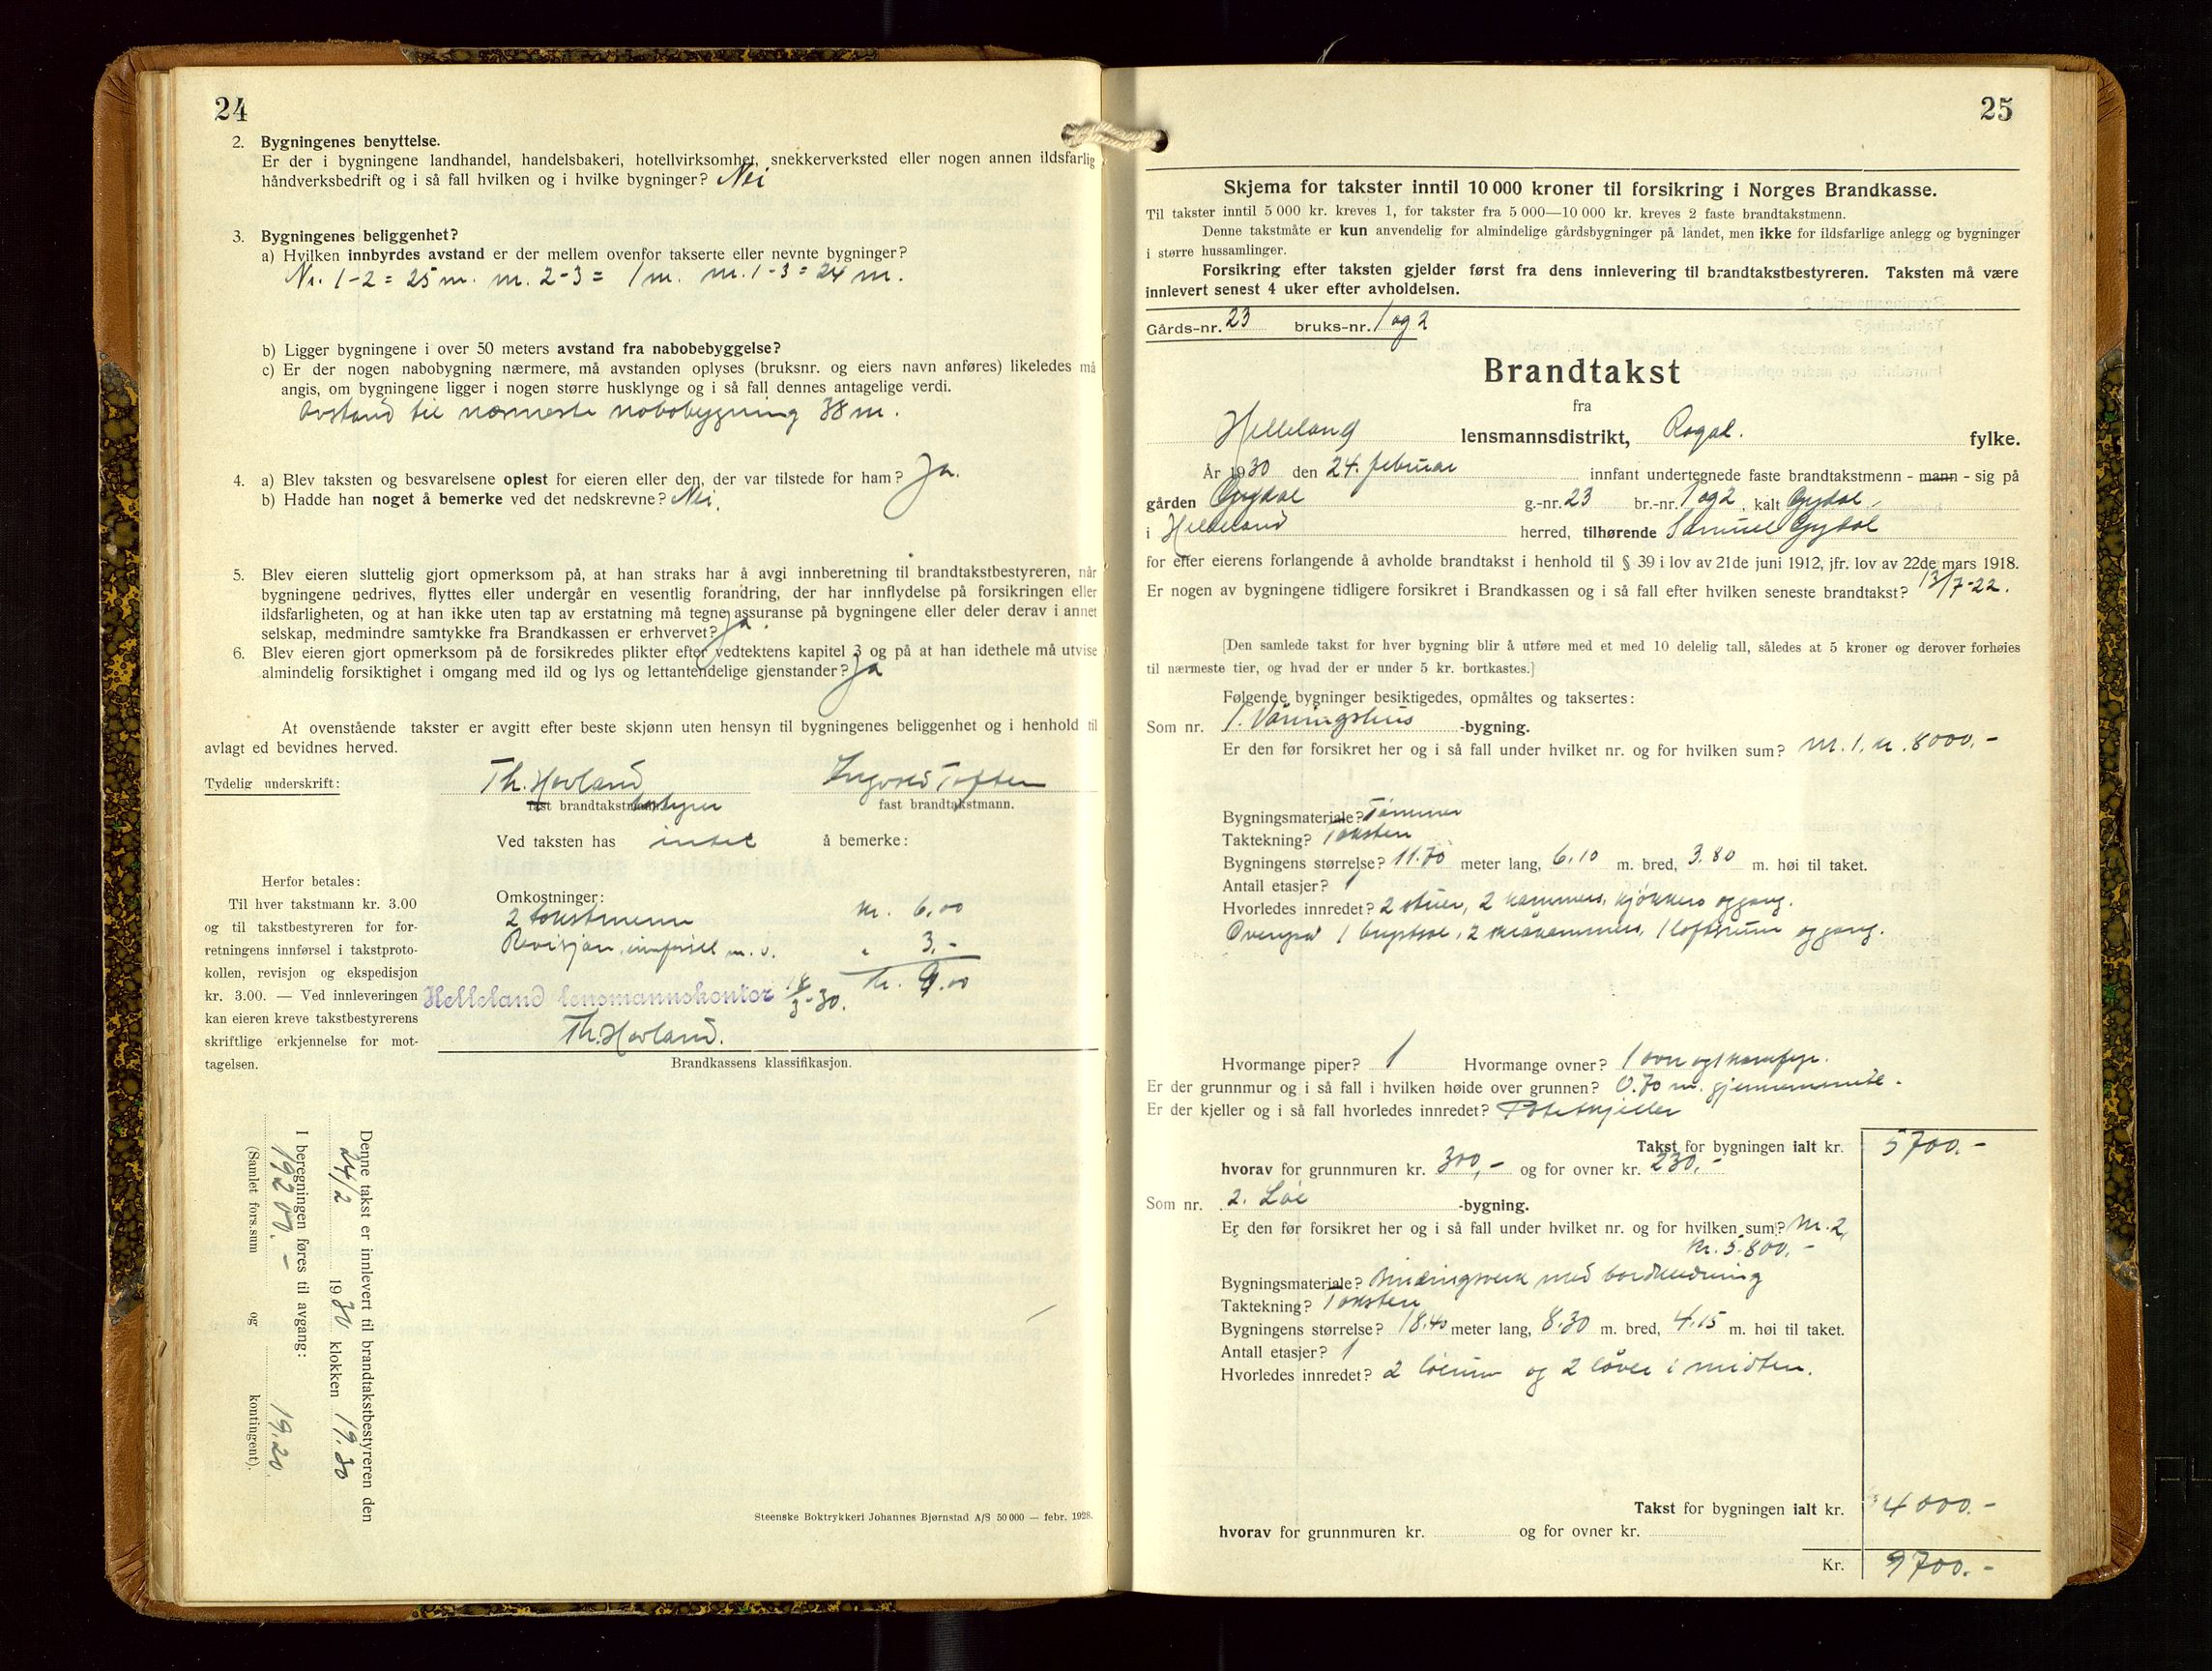 24
2. Bygningenes benyttelse.
Er der i bygningene landhandel, handelsbakeri, hotellvirksomhet, snekkerverksted eller nogen annen ildsfarlig
håndverksbedrift og i så fall hvilken og i hvilke bygninger? Nei
3. Bygningenes beliggenhet?
a) Hvilken innbyrdes avstand er der mellem ovenfor takserte eller nevnte bygninger?
Nr. 1-2 = 25 m. nr. 2-3 = 1 m. nr. 1-3 = 24 m.
b) Ligger bygningene i over 50 meters avstand fra nabobebyggelse?
c) Er der nogen nabobygning nærmere, må avstanden oplyses (bruksnr. og eiers navn anføres) likeledes må
angis, om bygningene ligger i nogen større husklynge og i så fall dennes antagelige verdi.
Avstand til nærmeste nabobygning 38 m.
4. a) Blev taksten og besvarelsene oplest for eieren eller den, der var tilstede for ham? Ja.
b) Hadde han noget å bemerke ved det nedskrevne? Nei.
5. Blev eieren sluttelig gjort opmerksom på, at han straks har å avgi innberetning til brandtakstbestyreren, når
bygningene nedrives, flyttes eller undergår en vesentlig forandring, der har innflydelse på forsikringen eller
ildsfarligheten, og at han ikke uten tap av erstatning må tegne assuranse på bygningene eller deler derav i annet
selskap, medmindre samtykke fra Brandkassen er erhvervet? Ja.
6. Blev eieren gjort opmerksom på de forsikredes plikter efter vedtektens kapitel 3 og på at han idethele må utvise
almindelig forsiktighet i omgang med ild og lys og lettantendelige gjenstander? Ja
At ovenstående takster er avgitt efter beste skjønn uten hensyn til bygningenes beliggenhet og i henhold til
avlagt ed bevidnes herved.
Tydelig underskrift: Th. Hovland Ingvald Toften
fast brandtakstmann bestyrer fast brandtakstmann.
Ved taksten has intet å bemerke:
Herfor betales:
Til hver takstmann kr. 3.00
og til takstbestyreren for for-
retningens innførsel i takstproto-
kollen, revisjon og ekspedisjon
kr. 3.00. — Ved innleveringen
kan eieren kreve takstbestyrerens
skriftlige erkjennelse for mot-
tagelsen.
Omkostninger:
2 takstmenn kr. 6,00
Revisjon, innførsel m. v. " 3,-
kr. 9.00
Helleland lensmannskontor 18/3-30.
Th. Hovland.
Brandkassens klassifikasjon.
Denne takst er innlevert til brandtakstbestyreren den
24/2 1930 klokken 19,30
I beregningen føres til avgang:
19200.- 19.20
(Samlet fors.sum og kontingent).
Steenske Boktrykkeri Johannes Bjørnstad A/S 50 000 — febr. 1928.
25
Skjema for takster inntil 10 000 kroner til forsikring i Norges Brandkasse.
Til takster inntil 5 000 kr. kreves 1, for takster fra 5 000—10 000 kr. kreves 2 faste brandtakstmenn.
Denne takstmåte er kun anvendelig for almindelige gårdsbygninger på landet, men ikke for ildsfarlige anlegg og bygninger
i større hussamlinger.
Forsikring efter taksten gjelder først fra dens innlevering til brandtakstbestyreren. Taksten må være
innlevert senest 4 uker efter avholdelsen.
Gårds-nr. 23 bruks-nr. 1 og 2
Brandtakst
fra
Helleland lensmannsdistrikt, Rogal. fylke.
År 1930 den 24. februar innfant undertegnede faste brandtakstmenn - mann - sig på
gården Gydal g.-nr. 23 br.-nr. 1 og 2, kalt Gydal,
i Helleland herred, tilhørende Samuel Gydal
for efter eierens forlangende å avholde brandtakst i henhold til § 39 i lov av 21de juni 1912, jfr. lov av 22de mars 1918.
Er nogen av bygningene tidligere forsikret i Brandkassen og i så fall efter hvilken seneste brandtakst? 13/7-22.
[Den samlede takst for hver bygning blir å utføre med et med 10 delelig tall, således at 5 kroner og derover forhøies
til nærmeste tier, og hvad der er under 5 kr. bortkastes.]
Følgende bygninger besiktigedes, opmåltes og taksertes:
Som nr. 1. Våningshus -bygning.
Er den før forsikret her og i så fall under hvilket nr. og for hvilken sum? nr. 1, kr. 8000,-
Bygningsmateriale? Tømmer
Taktekning? Taksten
Bygningens størrelse? 11.70 meter lang, 6,10 m. bred, 3.80 m. høi til taket.
Antall etasjer? 1
Hvorledes innredet? 2 stuer, 2 kammers, kjøkken og gang.
Ovenpå 1 , 2 , 1 loftsrum og gang.
Hvormange piper? 1 Hvormange ovner? 1 ovn og 1 komfyr.
Er der grunnmur og i så fall i hvilken høide over grunnen? 0.70 m. gjennemsnitl.
Er der kjeller og i så fall hvorledes innredet? Potetkjeller
Takst for bygningen ialt kr. 5700.-
hvorav for grunnmuren kr. 300,- og for ovner kr. 230,-
Som nr. 2. Løe -bygning.
Er den før forsikret her og i så fall under hvilket nr. og for hvilken sum? Nr. 2,
kr. 5.800,-
Bygningsmateriale? Bindingsverk med bordkledning
Taktekning? Taksten
Bygningens størrelse? 18.40 meter lang, 8.30 m. bred, 4.15 m. høi til taket.
Antall etasjer? 1
Hvorledes innredet? 2 løerum og 2 låver i midten.
Takst for bygningen ialt kr. 4000.-
hvorav for grunnmuren kr. og for ovner kr.
Kr. 9700.-